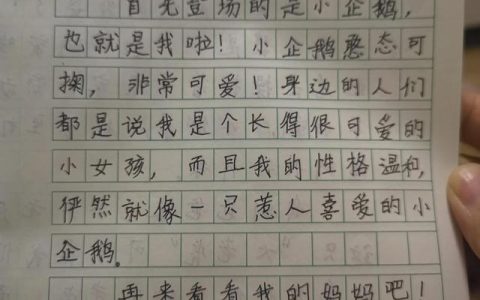 首先登场的是小企鹅,
也就是我啦!小企鹅憨态可
掬,非常可爱!身边的人们
都是说我是个长得很可爱的
小女孩,而且我的性格温和,
俨然就像一只惹人喜爱的小
企鹅。
再来看看我的妈妈吧!